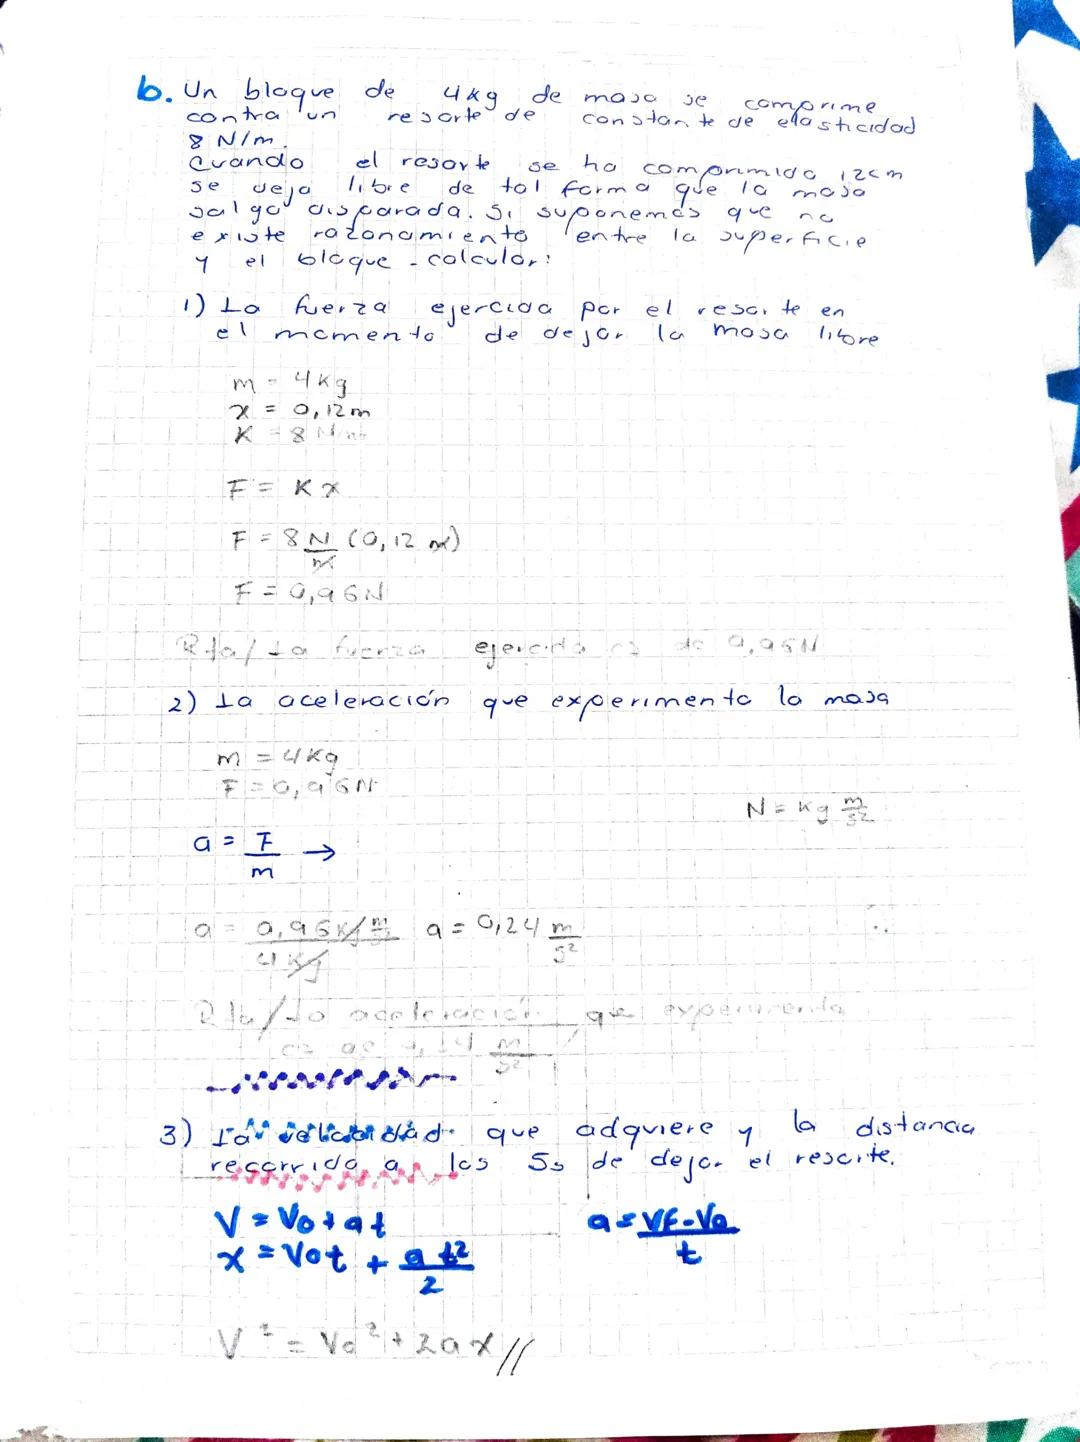 b. Un bloque de 4kg de masa se comprime
contra un resorte de constante de elasticidad
8 N/m.
Cuando el resorte se ha comprimido 12cm
se deja libre de tal forma que la masa
salga disparada. Si suponemos que no
existe razonamiento entre la superficie
y el bloque - calcular:
1) La fuerza ejercida por el resorte en
el momento de dejar la masa libre
m = 4kg
x = 0,12m
K = 8 N/m
F = Kx
F = 8 N/m (0,12 m)
F = 0,96N
Rta/ La fuerza ejercida es de 0,96N
2) La aceleración que experimenta la masa
m = 4Kg
F = 0,96N
N = Kg m/s²
a = F/m →
a = 0,96Kg m/s² / 4Kg a = 0,24 m/s²
Rta/ La aceleración que experimenta
es de 0,24 m/s²
3) La velocidad que adquiere y la distancia
recorrida a los 5s de dejar el resorte.
V = Vo + at a = Vf-Vo/t
x = Vot + at²/2
V² = Vo² + 2ax//